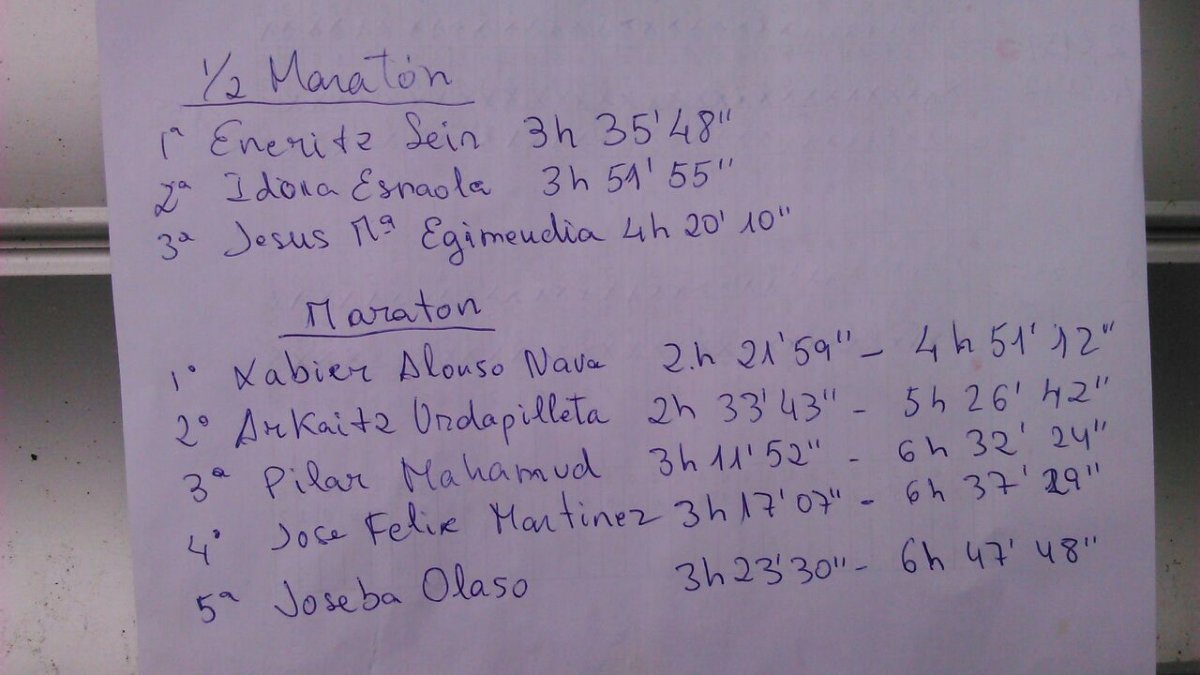 1/2 Maratón
1ª Eneritz Sein 3h 35'48"
2ª Idoia Esnaola 3h 51' 55"
3ª Jesus Mª Egimendia 4h 20' 10"
Maraton
1º Xabier Alonso Nava 2.h 21'59" - 4h 51' 12"
2º Arkaitz Urdapilleta 2h 33'43" - 5h 26' 42"
3ª Pilar Mahamud 3h 11'52" - 6h 32' 24"
4º Jose Felix Martinez 3h 17'07" - 6h 37' 29"
5ª Joseba Olaso 3h 23'30" - 6h 47' 48"